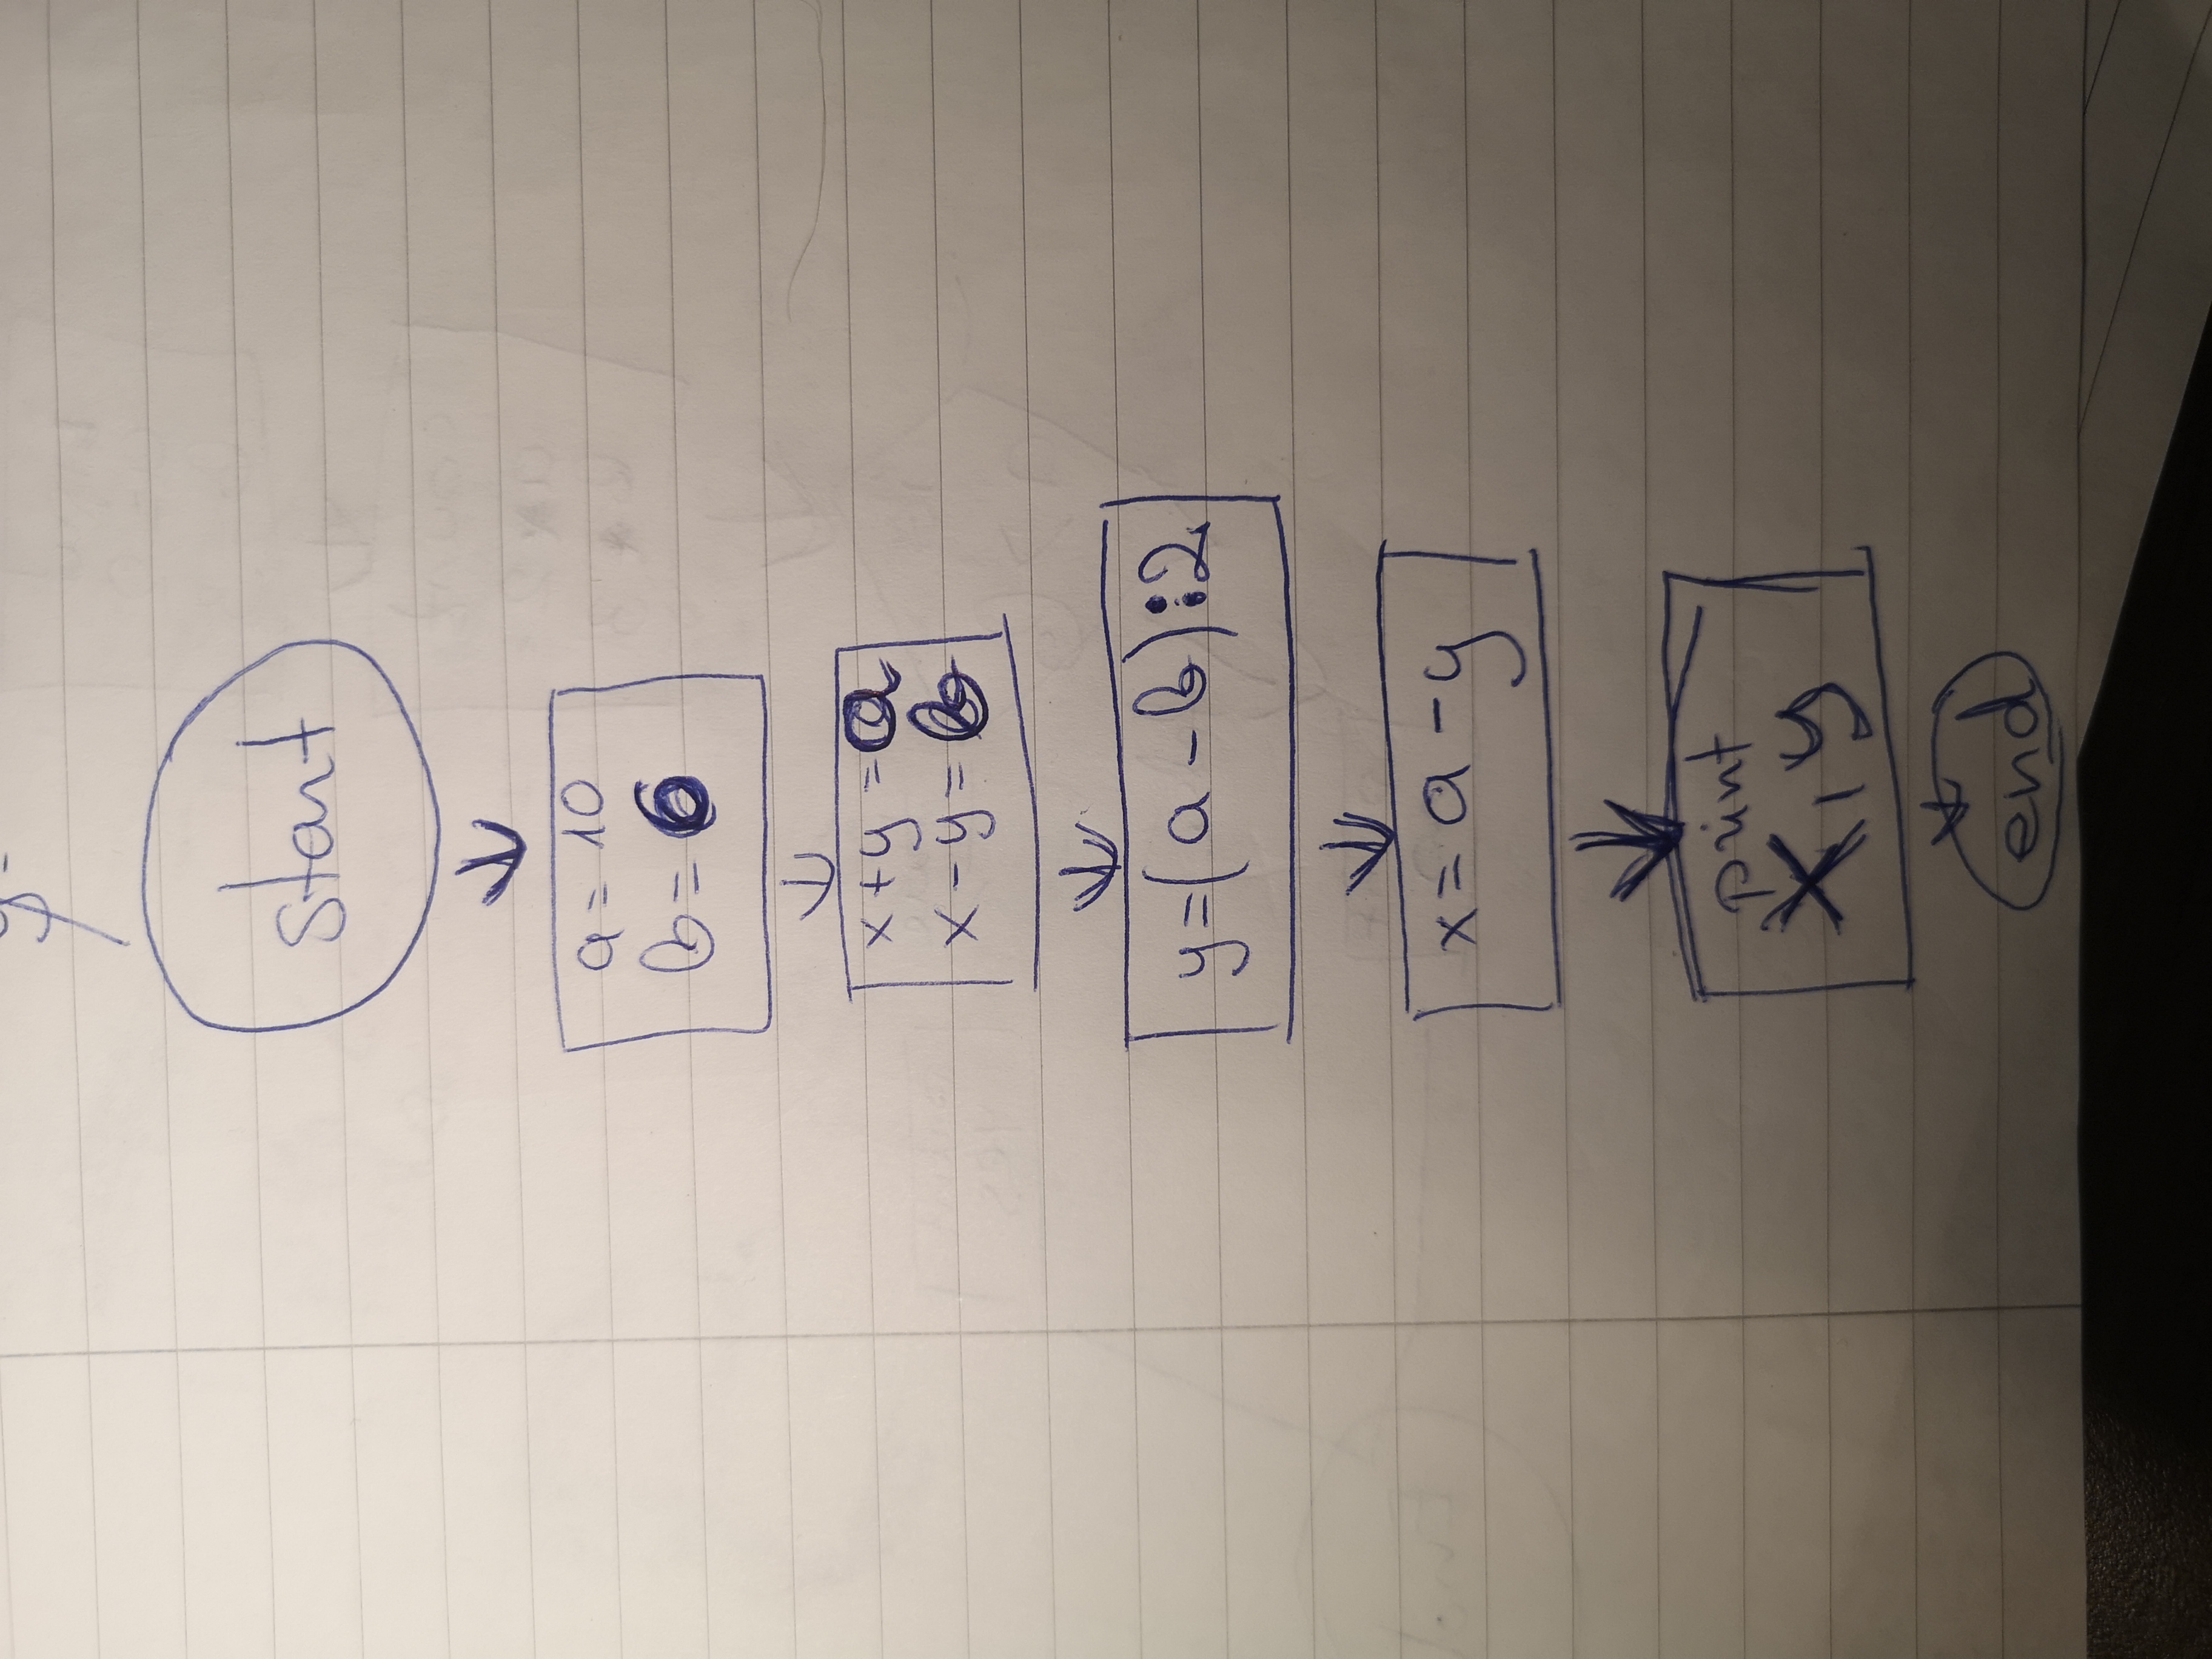 start
a = 10
b = 6
x+y = a
x-y = b
y=(a-b):2
x= a-y
print
x,y
end